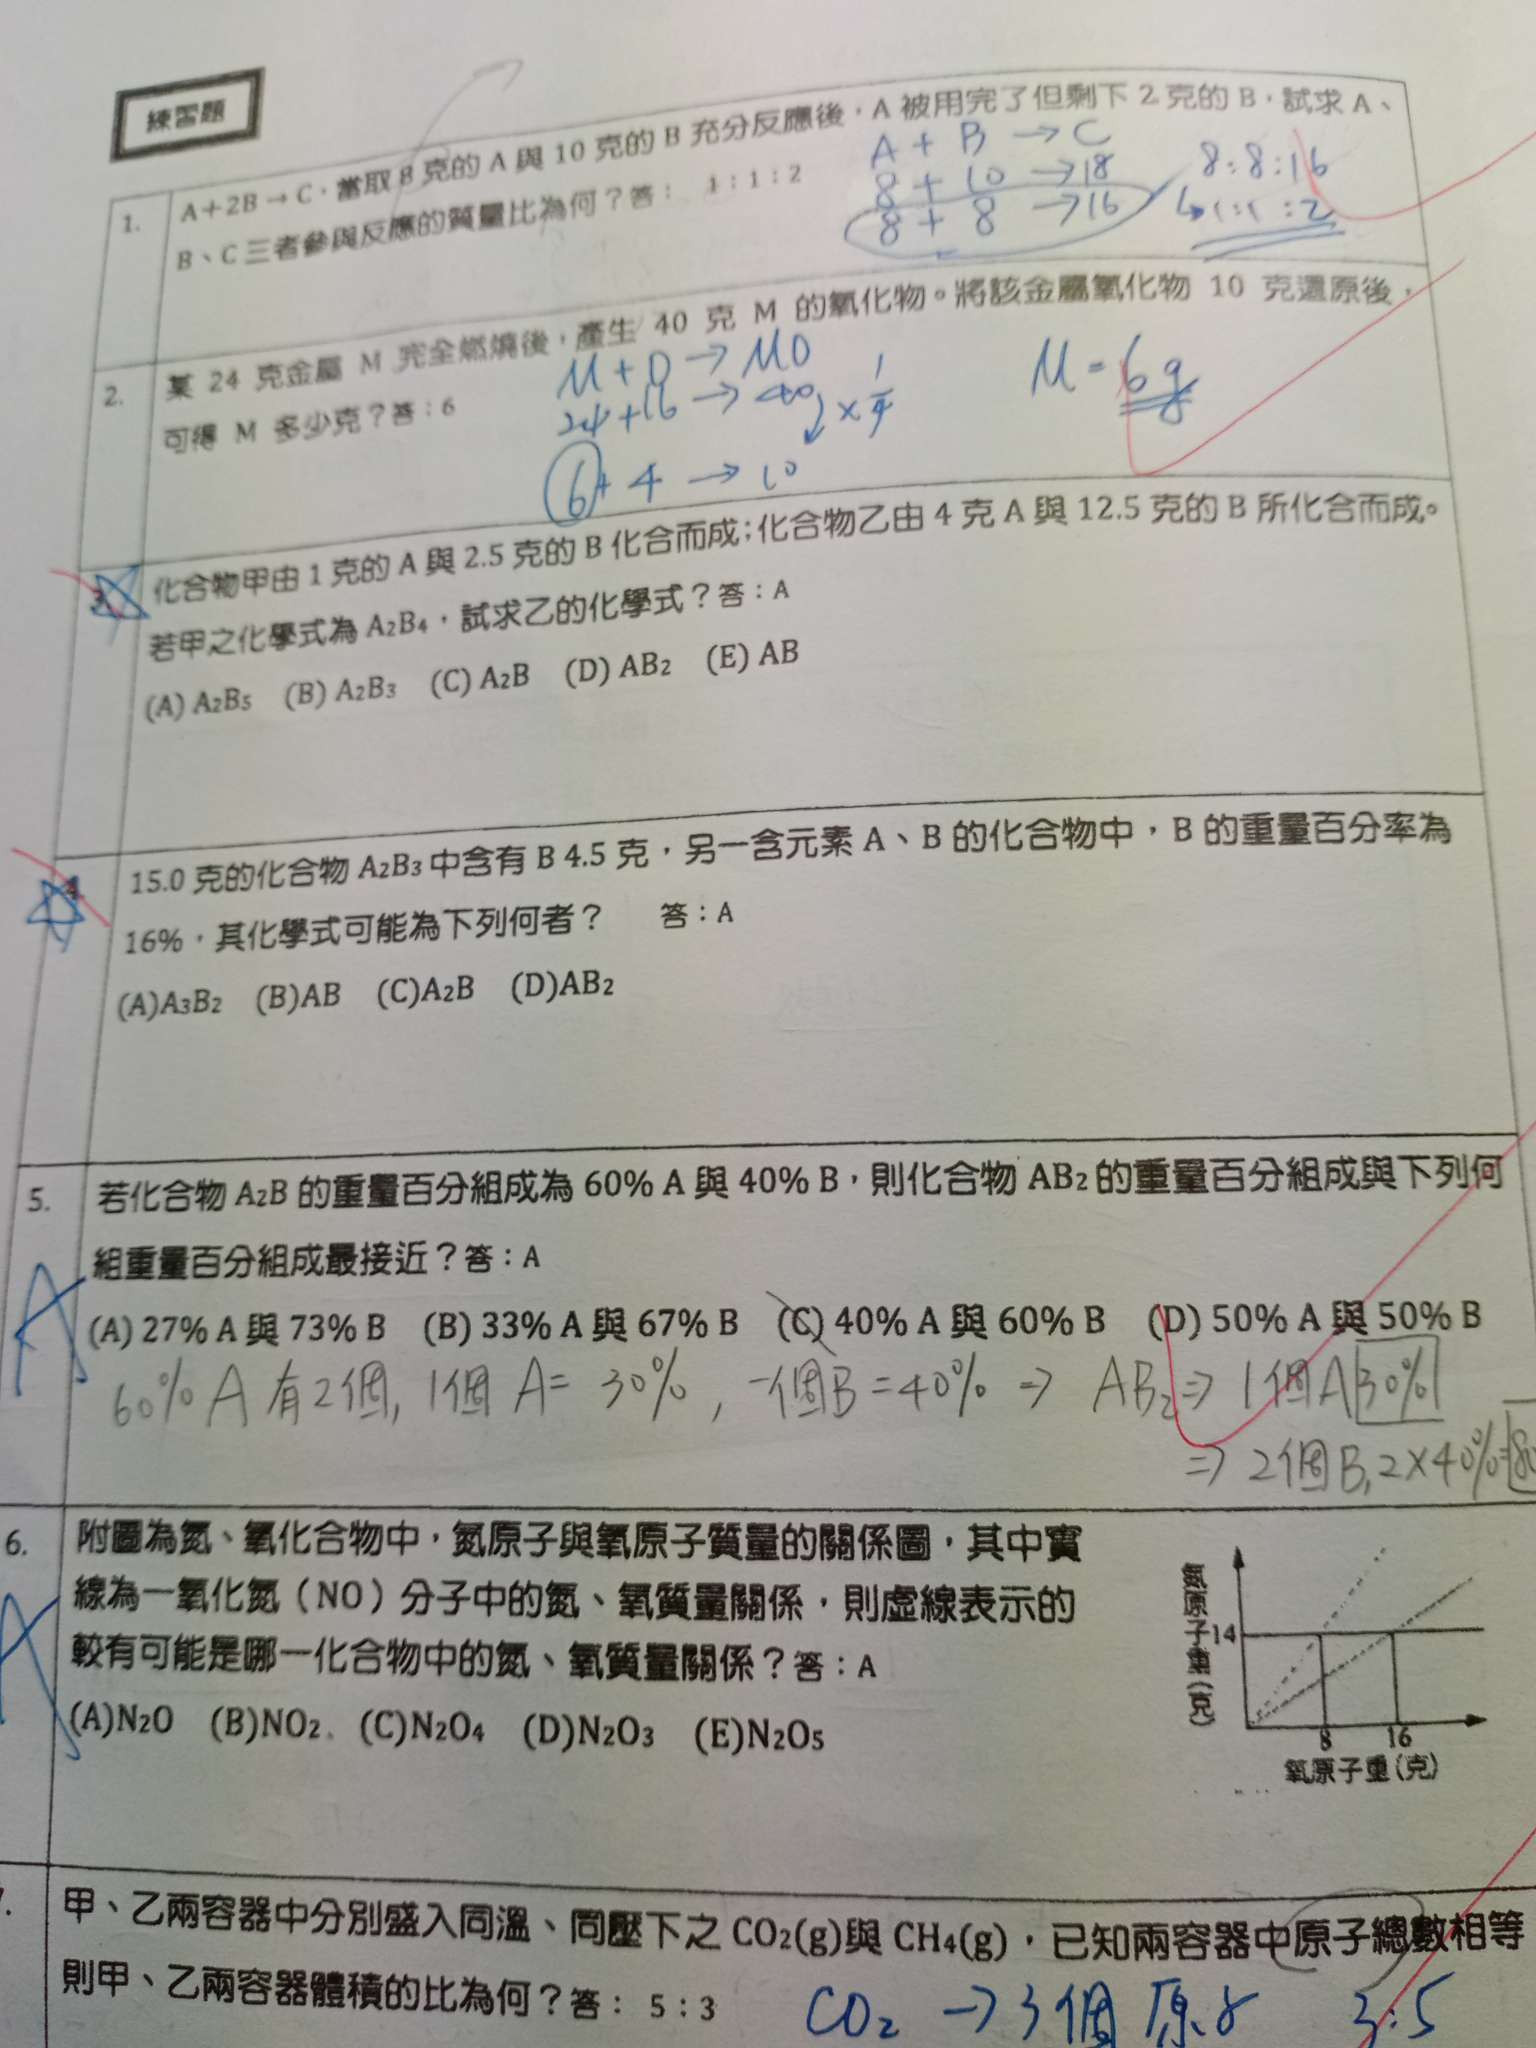 練習題
1. A+2B→C，當取 8 克的 A 與 10 克的 B 充分反應後，A 被用完了但剩下 2 克的 B，試求 A、
B、C 三者參與反應的質量比為何？答： 1：1：2
A + B → C
8 + 10 → 18
8 + 8 → 16
8:8:16
↳ 1:1:2
2. 某 24 克金屬 M 完全燃燒後，產生 40 克 M 的氧化物。將該金屬氧化物 10 克還原後，
可得 M 多少克？答：6
M + O → MO
24+16 → 40
×1/4
6+4 → 10
M = 6g
3. 化合物甲由 1 克的 A 與 2.5 克的 B 化合而成；化合物乙由 4 克 A 與 12.5 克的 B 所化合而成。
若甲之化學式為 A₂B₄，試求乙的化學式？答：A
(A) A₂B₅ (B) A₂B₃ (C) A₂B (D) AB₂ (E) AB
4. 15.0 克的化合物 A₂B₃ 中含有 B 4.5 克，另一含元素 A、B 的化合物中，B 的重量百分率為
16%，其化學式可能為下列何者？ 答：A
(A)A₃B₂ (B)AB (C)A₂B (D)AB₂
5. 若化合物 A₂B 的重量百分組成為 60% A 與 40% B，則化合物 AB₂ 的重量百分組成與下列何
組重量百分組成最接近？答：A
A
(A) 27% A 與 73% B (B) 33% A 與 67% B (C) 40% A 與 60% B (D) 50% A 與 50% B
60% A 有2個, 1個 A = 30%, 一個B = 40% ⇒ AB₂ ⇒ 1個A 30%
⇒ 2個B, 2×40%=80
6. 附圖為氮、氧化合物中，氮原子與氧原子質量的關係圖，其中實
線為一氧化氮（NO）分子中的氮、氧質量關係，則虛線表示的
較有可能是哪一化合物中的氮、氧質量關係？答：A
A
(A)N₂O (B)NO₂ (C)N₂O₄ (D)N₂O₃ (E)N₂O₅
氮原子重(克)
14
8 16
氧原子重(克)
甲、乙兩容器中分別盛入同溫、同壓下之 CO₂(g)與 CH₄(g)，已知兩容器中原子總數相等
則甲、乙兩容器體積的比為何？答： 5：3
CO₂ → 3個原子 3:5